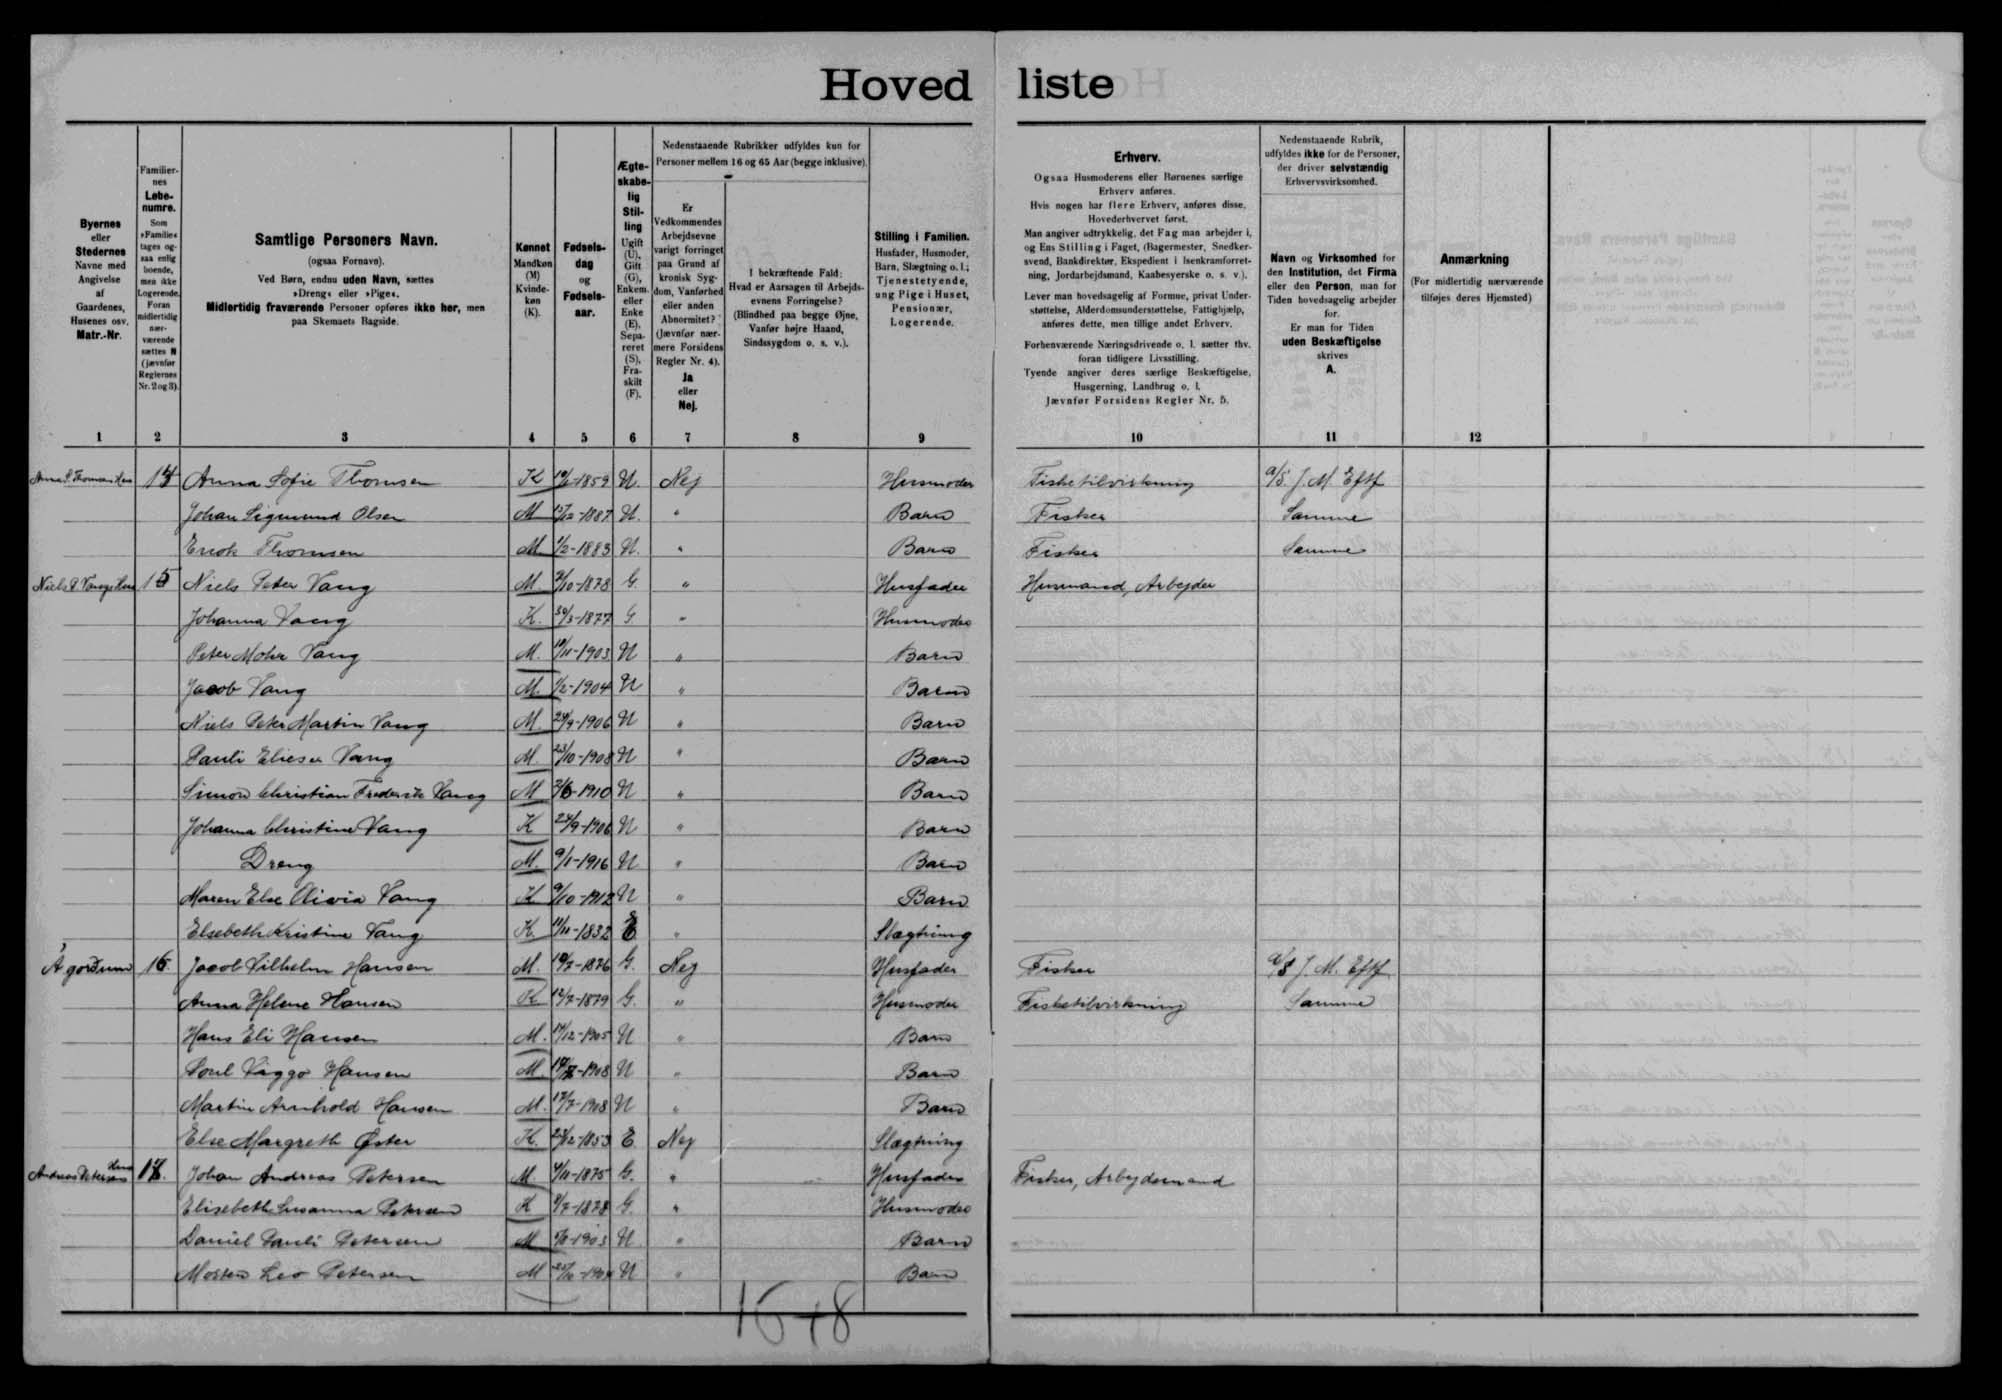 Hovedliste
Byernes
eller
Stedernes
Navne med
Angivelse
af
Gaardenes,
Husenes osv.
Matr.-Nr.
Familier-
nes
Løbe-
numre.
Som
»Familie«
tages og-
saa enlig
boende,
men ikke
Logerende.
Foran
midlertidig
nær-
værende
sættes N
(jævnfør
Reglernes
Nr. 2 og 3).
Samtlige Personers Navn.
(ogsaa Fornavn).
Ved Børn, endnu uden Navn, sættes
»Dreng« eller »Pige«.
Midlertidig fraværende Personer opføres ikke her, men
paa Skemaets Bagside.
Kønnet
Mandkøn
(M)
Kvinde-
køn
(K).
Fødsels-
dag
og
Fødsels-
aar.
Ægte-
skabe-
lig
Stil-
ling
Ugift
(U),
Gift
(G),
Enkem.
eller
Enke
(E),
Sepa-
reret
(S),
Fra-
skilt
(F).
Nedenstaaende Rubrikker udfyldes kun for
Personer mellem 16 og 65 Aar (begge inklusive).
Er
Vedkommendes
Arbejdsevne
varigt forringet
paa Grund af
kronisk Syg-
dom, Vanførhed
eller anden
Abnormitet?
(Jævnfør nær-
mere Forsidens
Regler Nr. 4).
Ja
eller
Nej.
I bekræftende Fald:
Hvad er Aarsagen til Arbejds-
evnens Forringelse?
(Blindhed paa begge Øjne,
Vanfør højre Haand,
Sindssygdom o. s. v.).
Stilling i Familien.
Husfader, Husmoder,
Barn, Slægtning o. l.;
Tjenestetyende,
ung Pige i Huset,
Pensionær,
Logerende.
Erhverv.
Ogsaa Husmoderens eller Børnenes særlige
Erhverv anføres.
Hvis nogen har flere Erhverv, anføres disse.
Hovederhvervet først.
Man angiver udtrykkelig, det Fag man arbejder i,
og Ens Stilling i Faget, (Bagermester, Snedker-
svend, Bankdirektør, Ekspedient i Isenkramforret-
ning, Jordarbejdsmand, Kaabesyerske o. s. v.).
Lever man hovedsagelig af Formue, privat Under-
støttelse, Alderdomsunderstøttelse, Fattighjælp,
anføres dette, men tillige andet Erhverv.
Forhenværende Næringsdrivende o. l. sætter thv.
foran tidligere Livsstilling.
Tyende angiver deres særlige Beskæftigelse,
Husgerning, Landbrug o. l.
Jævnfør Forsidens Regler Nr. 5.
Nedenstaaende Rubrik,
udfyldes ikke for de Personer,
der driver selvstændig
Erhvervsvirksomhed.
Navn og Virksomhed for
den Institution, det Firma
eller den Person, man for
Tiden hovedsagelig arbejder
for.
Er man for Tiden
uden Beskæftigelse
skrives
A.
Anmærkning
(For midlertidig nærværende
tilføjes deres Hjemsted)
1 2 3 4 5 6 7 8 9 10 11 12
14 Anna Sofie Thomsen K 1859 U. Nej Husmoder Fisketilvirkning a/s. J. M. Eftf
Johan Sigmund Olsen M 15/12-1887 U. " Barn Fisker Samme
Enok Thomsen M 1/2-1883 U. " Barn Fisker Samme
Niels P. Vangs Hus 15 Niels Peter Vang M. 2/10-1878 G. " Husfader Husmand, Arbejder
Johanna Vang K. 30/3-1877 G " Husmoder
Peter Mohr Vang M. 18/11-1903 U " Barn
Jacob Vang M. 1/2-1904 U " Barn
Niels Peter Martin Vang M. 24/9-1906 U " Barn
Pauli Elieser Vang M. 23/10-1908 U " Barn
Simon Christian Frederik Vang M 2/6-1910 U " Barn
Johanna Christine Vang K 24/9-1906 U " Barn
Dreng M. 9/1-1916 U " Barn
Maren Else Olivia Vang K 9/10-1912 U " Barn
Elsebeth Kristine Vang K. 11/11-1832 E " Slægtning
Á gørðunum 16. Jacob Vilhelm Hansen M. 19/7-1876 G. Nej Husfader Fisker a/s J. M. Eftf
Anna Helene Hansen K 12/7-1879 G. " Husmoder Fisketilvirkning Samme
Hans Eli Hansen M. 14/12-1905 U " Barn
Poul Viggo Hansen M. 1908 U " Barn
Martin Arnhold Hansen M. 17/7-1908 U " Barn
Else Margreth Øster K. 23/12-1853 E Nej Slægtning
Andreas Petersens Hus 17. Johan Andreas Petersen M. 4/11-1875 G. " Husfader Fisker, Arbejdsmand
Elisebeth Susanna Petersen K 9/7-1878 G. " Husmoder
Daniel Pauli Petersen M 1903 U " Barn
Morten Leo Petersen M U " Barn
16+8